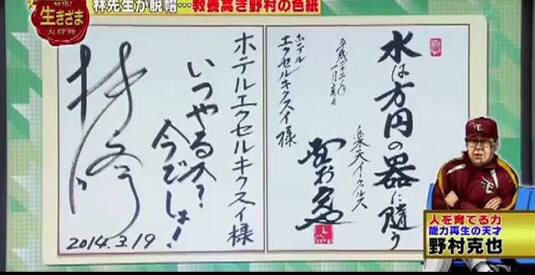 生きざま
大辞典
林先生が脱帽…教養高き野村の色紙
水は方円の器に随う
楽天イーグルス
ホテル
エクセルキクスイ様
ホテルエクセルキクスイ様
いつやるか?
今でしょ!
2014.3.19
人を育てる力
能力再生の天才
野村克也